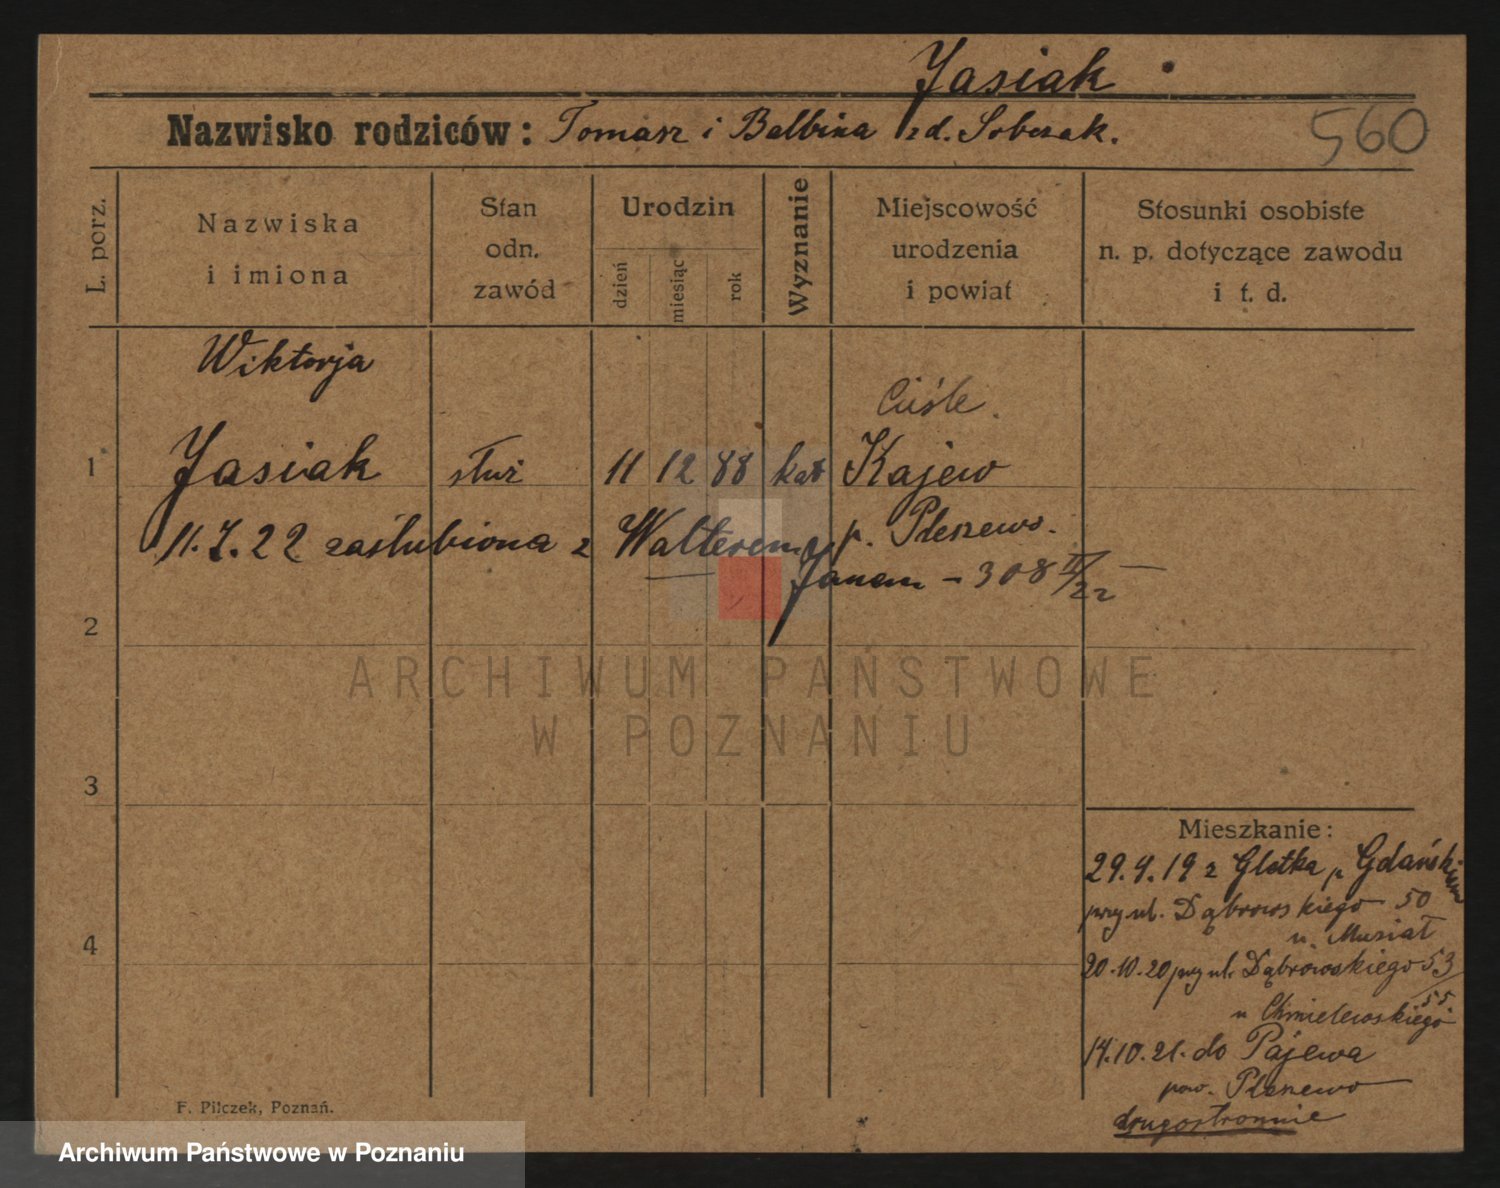 Jasiak
Nazwisko rodziców: Tomasz i Balbina zd. Sobczak.
560
L. porz.
Nazwiska
i imiona
Stan
odn.
zawód
Urodzin
dzień
miesiąc
rok
Wyznanie
Miejscowość
urodzenia
i powiat
Stosunki osobiste
n. p. dotyczące zawodu
i t. d.
Wiktorja
Ciśle.
1 Jasiak służ 11 12 88 kat Kajew
p. Pleszewo.
11.7.22 zaślubiona z Walterem
Janem – 308 II/22 –
2
3
4
Mieszkanie:
29.4.19 z Gdańsk
przy ul. Dąbrowskiego 50
u. Musiał
20.10.20 przy ul. Dąbrowskiego 53/55
u Chmielewskiego
14.10.21. do Pajewa
pow. Pleszewo
drugostronnie
F. Pilczek, Poznań.
ARCHIWUM PAŃSTWOWE
W POZNANIU
Archiwum Państwowe w Poznaniu